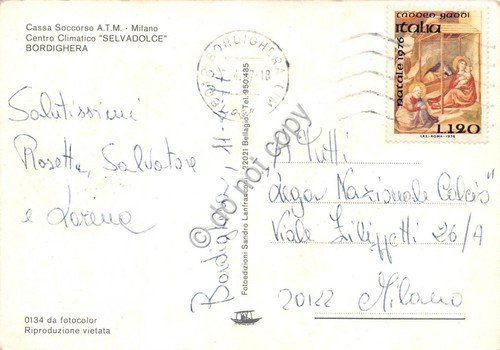 Cassa Soccorso A.T.M. - Milano
Centro Climatico "SELVADOLCE"
BORDIGHERA
Salutissimi
Rosetta, Salvatore
e Lorena
0134 da fotocolor
Riproduzione vietata
Bordighera, 11-4-77
Fotoedizioni Sandro Lanfranconi 22021 Bellagio Tel. 950.435
BORDIGHERA (IM)
taddeo gaddi
italia
natale 1976
L.120
I.P.S.-ROMA-1976
A Tutti
"Lega Nazionale Calcio"
Viale Filippetti 26/A
20122 Milano
do not copy